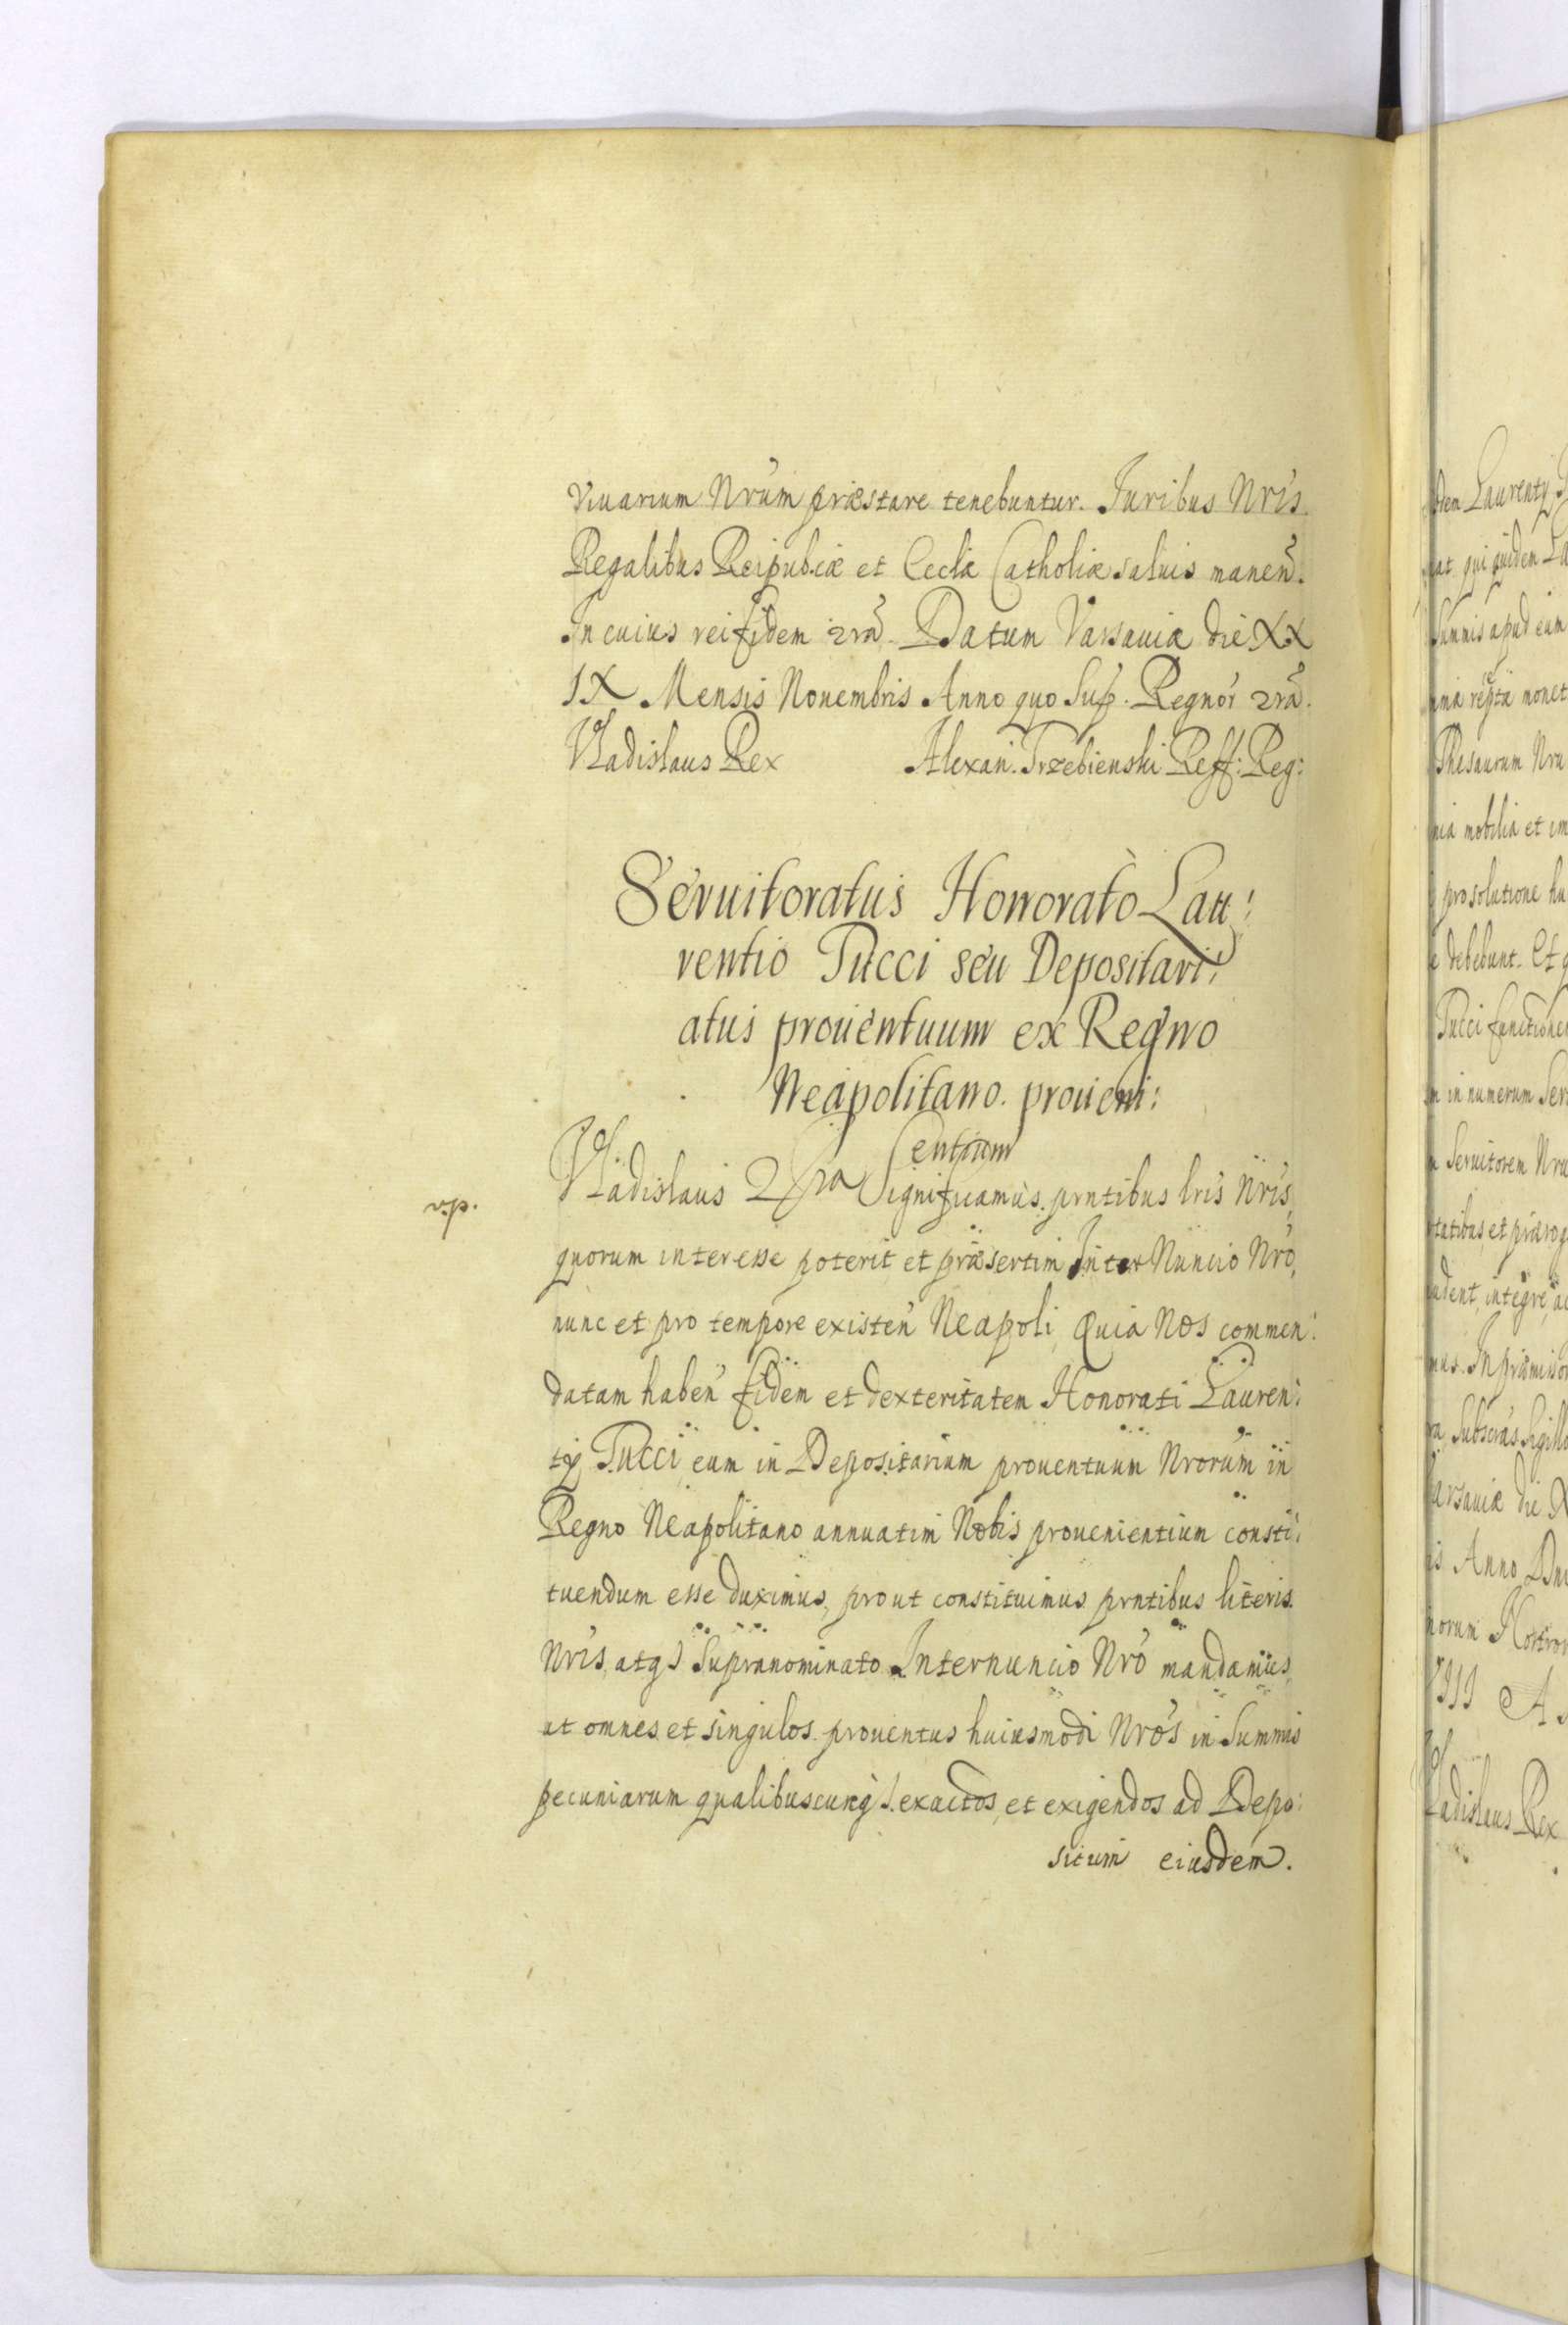 Viuarium Nrúm præstare tenebuntur. Juribus Nrís
Regalibus Reipublicæ et Eccliæ Catholicæ saluis manen̄.
In cuius rei fidem &ra. Datum Varsauiæ die XX
IX Mensis Nouembris Anno quo Sup. Regnór &ra.
Vladislaus Rex Alexan. Trzebienski Reff: Reg:
Seruitoratus Honorato Lau:
rentio Tucci seu Depositari:
atus prouentuum ex Regno
Neapolitano. proueni:
entium
vip. Vladislaus &ra Significamus. prntibus lris Nrís,
quorum interesse poterit et præsertim Inter Nuncio Nró,
nunc et pro tempore existeń Neapoli, Quia Nos commen:
datam habeń fidem et dexteritatem Honorati Lauren:
tij Tucci eum in Depositarium prouentuum Nrorúm in
Regno Neapolitano annuatim Nobis prouenientium consti:
tuendum esse duximus, prout constituimus prntibus literis
Nrís, atq3 Supranominato Internuncio Nró mandamus,
ut omnes et singulos prouentus huiusmodi Nrós in Summis
pecuniarum qualibuscunq3 exactos, et exigendos ad Depo:
situm eiusdem.
dem Laurentij
at qui quidem
Summis apud eum
Thesaurum Nru
mobilia et im
pro solutione hu
debebunt. Et q
Tucci functione
in numerum Ser
Seruitorem Nru
et prærog
integre, ac
Subscrás Sigillo
arsauiæ die X
Anno Dni
norum Nostror
ladislaus Rex